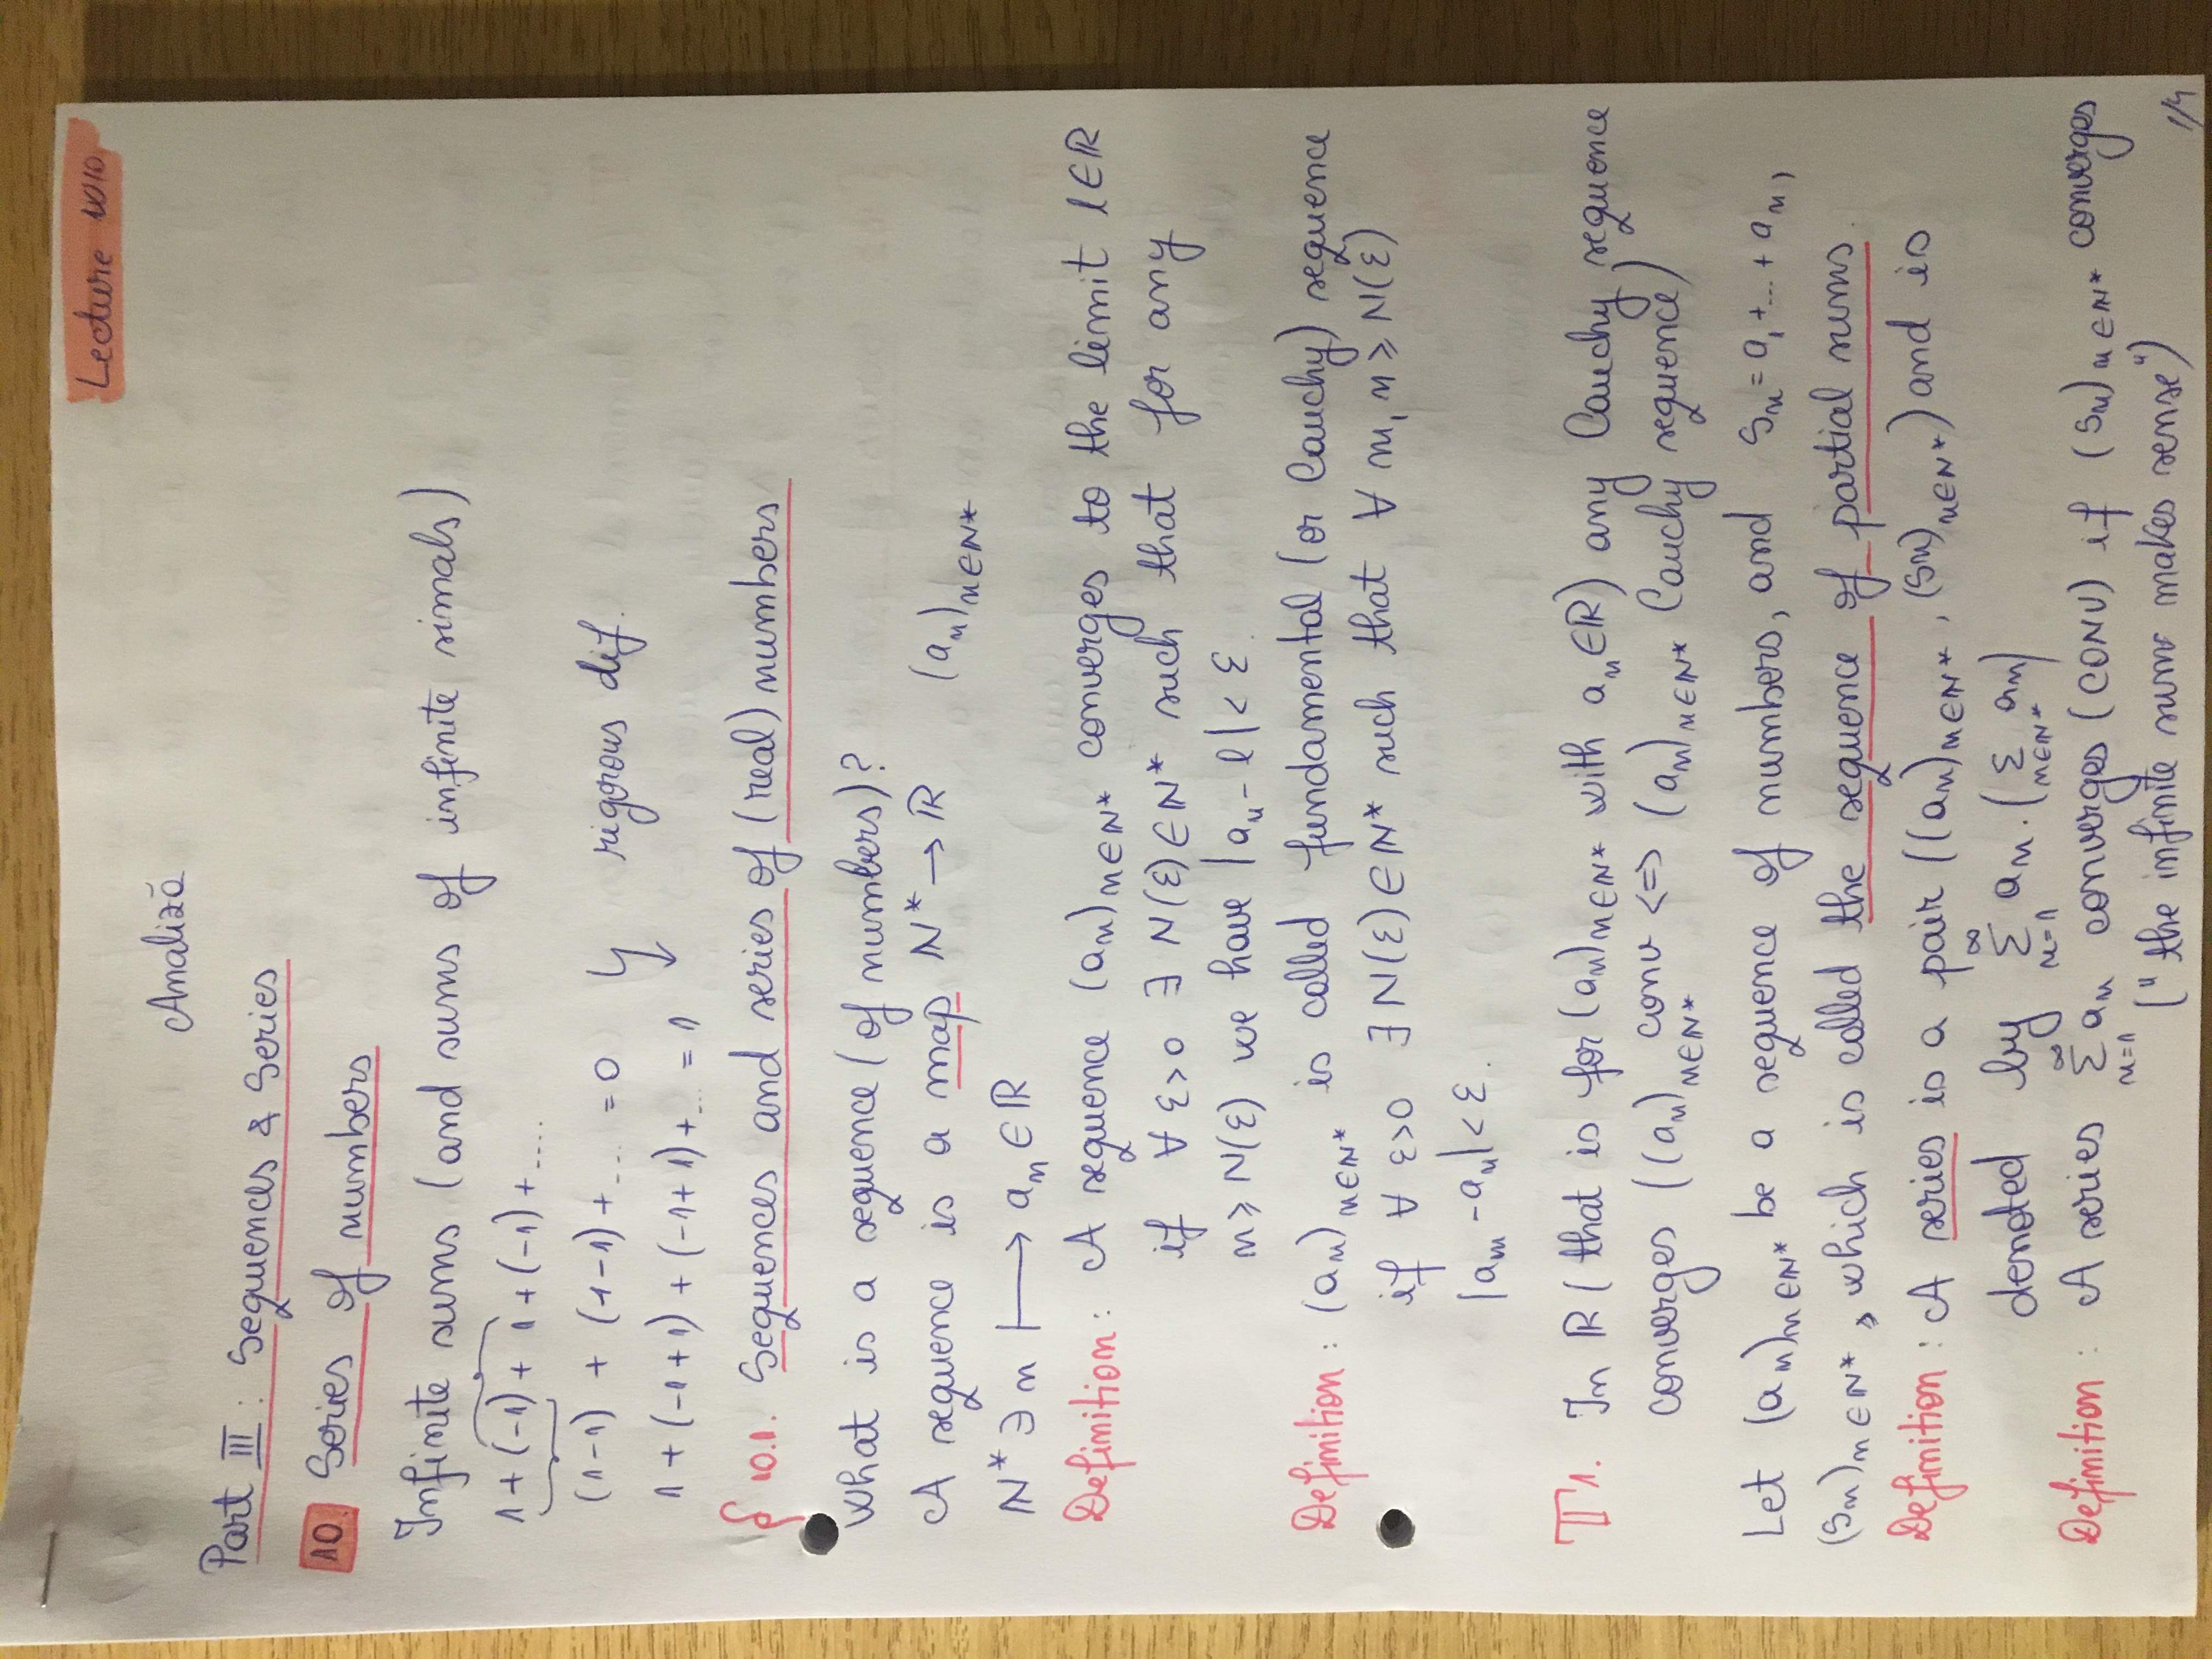 Lecture 10
Analiză
Part III: Sequences & Series
10. Series of numbers
Infinite sums (and sums of infinite simals)
1 + (-1) + 1 + (-1) + ....
(1-1) + (1-1) + ... = 0 ↯ rigorous dif.
1 + (-1+1) + (-1+1) + ... = 1
§ 10.1. Sequences and series of (real) numbers
What is a sequence (of numbers)?
A sequence is a map ℕ* → ℝ (aₙ)ₙ∈ℕ*
ℕ* ∋ n ⟼ aₙ ∈ ℝ
Definition: A sequence (aₙ)ₙ∈ℕ* converges to the limit l∈ℝ
if ∀ ε>0 ∃ N(ε)∈ℕ* such that for any
n ≥ N(ε) we have |aₙ - l| < ε.
Definition: (aₙ)ₙ∈ℕ* is called fundamental (or Cauchy) sequence
if ∀ ε>0 ∃ N(ε)∈ℕ* such that ∀ m, n ≥ N(ε)
|aₘ - aₙ| < ε.
T1. In ℝ (that is for (aₙ)ₙ∈ℕ* with aₙ∈ℝ) any Cauchy sequence
converges ((aₙ)ₙ∈ℕ* conv <=> (aₙ)ₙ∈ℕ* Cauchy sequence)
Let (aₙ)ₙ∈ℕ* be a sequence of numbers, and Sₙ = a₁ + ... + aₙ,
(Sₙ)ₙ∈ℕ*, which is called the sequence of partial sums.
Definition: A series is a pair ((aₙ)ₙ∈ℕ*, (Sₙ)ₙ∈ℕ*) and is
denoted by ∑_{n=1}^{∞} aₙ. (∑_{n∈ℕ*} aₙ)
Definition: A series ∑_{n=1}^{∞} aₙ converges (CONV) if (Sₙ)ₙ∈ℕ* converges
("the infinite sum makes sense")
1/4